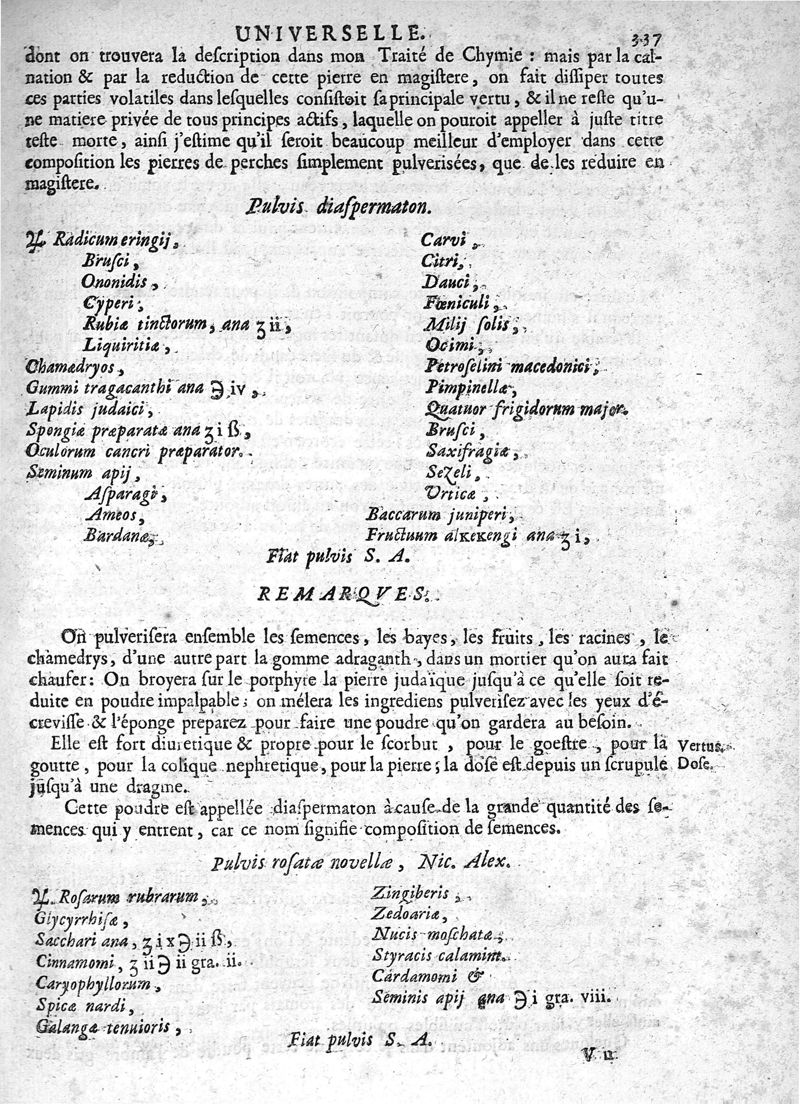 UNIVERSELLE. 337
dont on trouvera la deſcription dans mon Traité de Chymie : mais par la cal-
nation & par la reduction de cette pierre en magiſtere, on fait diſſiper toutes
ces parties volatiles dans leſquelles conſiſtoit ſa principale vertu, & il ne reſte qu'u-
ne matiere privée de tous principes actifs, laquelle on pouroit appeller à juſte titre
teſte morte, ainſi j'eſtime qu'il ſeroit beaucoup meilleur d'employer dans cette
compoſition les pierres de perches ſimplement pulveriſées, que de les réduire en
magiſtere.
Pulvis diaſpermaton.
♃. Radicum eringij,
Bruſci,
Ononidis,
Cyperi,
Rubiæ tinctorum, ana ʒ ii,
Liquiritiæ,
Chamædryos,
Gummi tragacanthi ana ℈ iv,
Lapidis judaici,
Spongiæ præparatæ ana ʒ i ß,
Oculorum cancri præparator.
Seminum apij,
Aſparagi,
Ameos,
Bardanæ,
Carvi,
Citri,
Dauci,
Fœniculi,
Milij ſolis,
Ocimi,
Petroſelini macedonici,
Pimpinellæ,
Quatuor frigidorum major.
Bruſci,
Saxifragiæ,
Seʒeli,
Urticæ,
Baccarum juniperi,
Fructuum alκeκengi ana ʒ i,
Fiat pulvis S. A.
REMARQUES.
On pulveriſera enſemble les ſemences, les bayes, les fruits, les racines, le
chamedrys, d'une autre part la gomme adraganth, dans un mortier qu'on aura fait
chaufer: On broyera ſur le porphyre la pierre judaïque juſqu'à ce qu'elle ſoit re-
duite en poudre impalpable; on mélera les ingrediens pulveriſez avec les yeux d'é-
creviſſe & l'éponge preparez pour faire une poudre qu'on gardera au beſoin.
Elle eſt fort diuretique & propre pour le ſcorbut, pour le goeſtre, pour la Vertus.
goutte, pour la colique nephretique, pour la pierre; la doſe eſt depuis un ſcrupule Doſe.
juſqu'à une dragme.
Cette poudre eſt appellée diaſpermaton à cauſe de la grande quantité des ſe-
mences qui y entrent, car ce nom ſignifie compoſition de ſemences.
Pulvis roſatæ novellæ, Nic. Alex.
♃. Roſarum rubrarum,
Glycyrrhiſæ,
Sacchari ana, ʒ i x ℈ ii ß,
Cinnamomi, ʒ ii ℈ ii gra. ii.
Caryophyllorum,
Spicæ nardi,
Galangæ tenuioris,
Zingiberis,
Zedoariæ,
Nucis moſchatæ,
Styracis calamint.
Cardamomi &
Seminis apij ana ℈ i gra. viii.
Fiat pulvis S. A.
V u